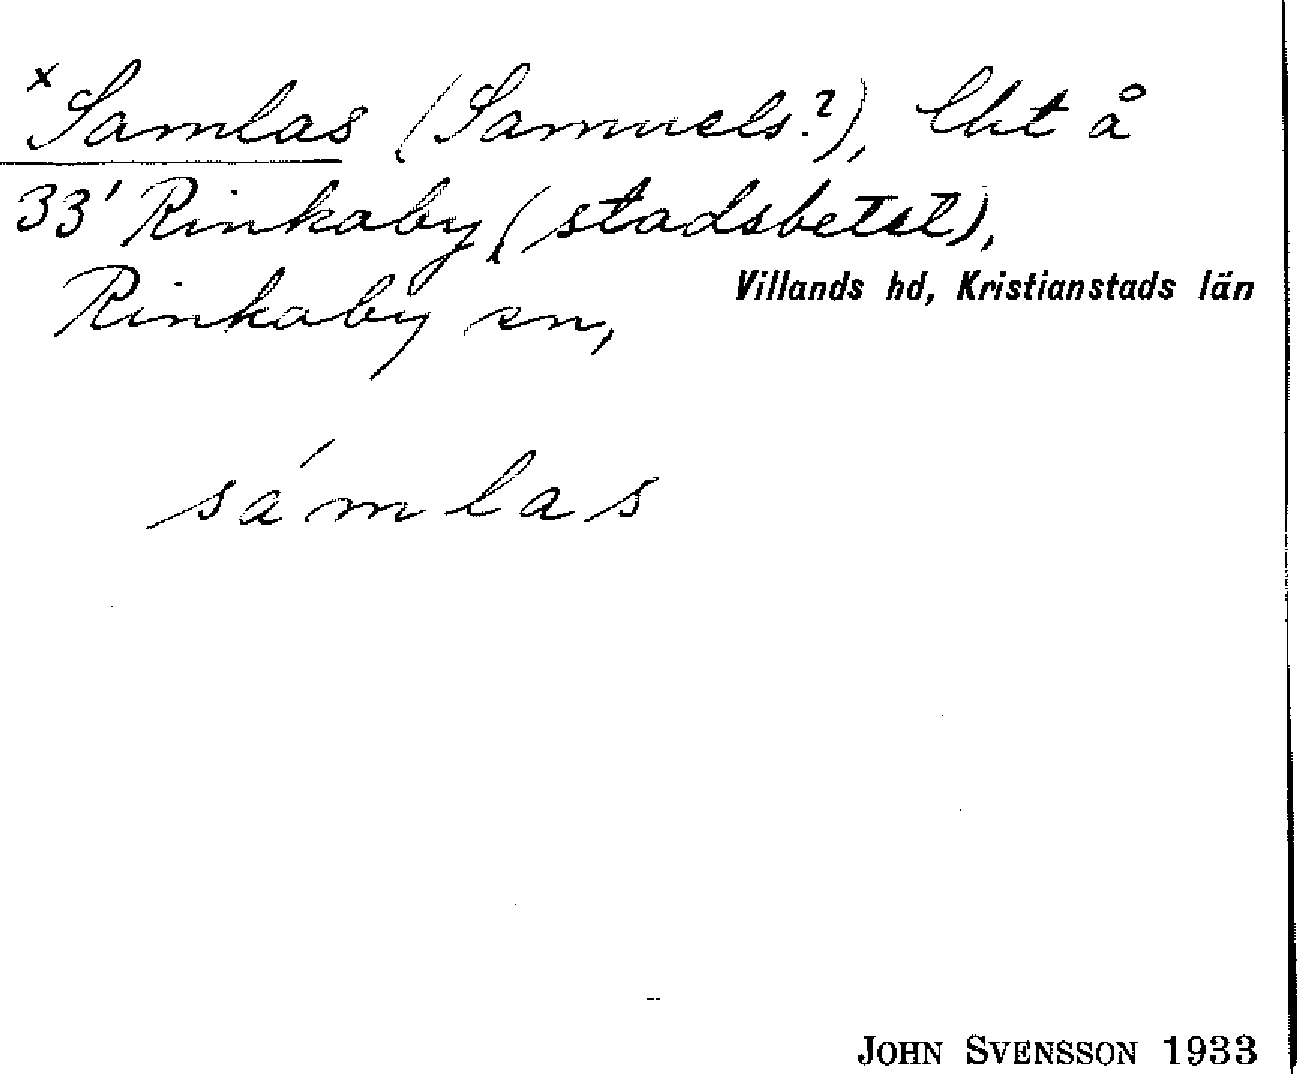 x Samlas (Samuels?), lht å
33' Rinkaby (stadsbetst),
Rinkaby sn,
Villands hd, Kristianstads län
sámlas
JOHN SVENSSON 1933